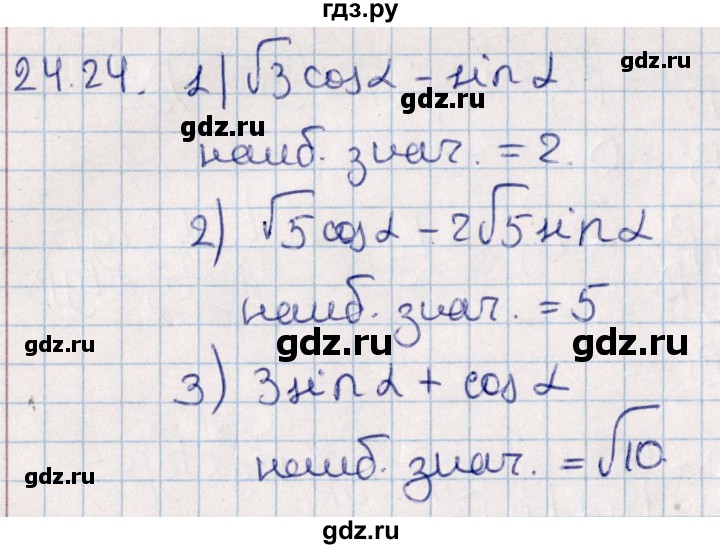 гдз.ру
24.24. 1) √3 cos α - sin α
gdz.ru
gdz.ru
наиб. знач. = 2.
2) √5 cos α - 2√5 sin α
наиб. знач. = 5
gdz.ru
gdz.ru
gdz.ru
3) 3 sin α + cos α
наиб. знач. = √10
gdz.ru
gdz.ru
gdz.ru